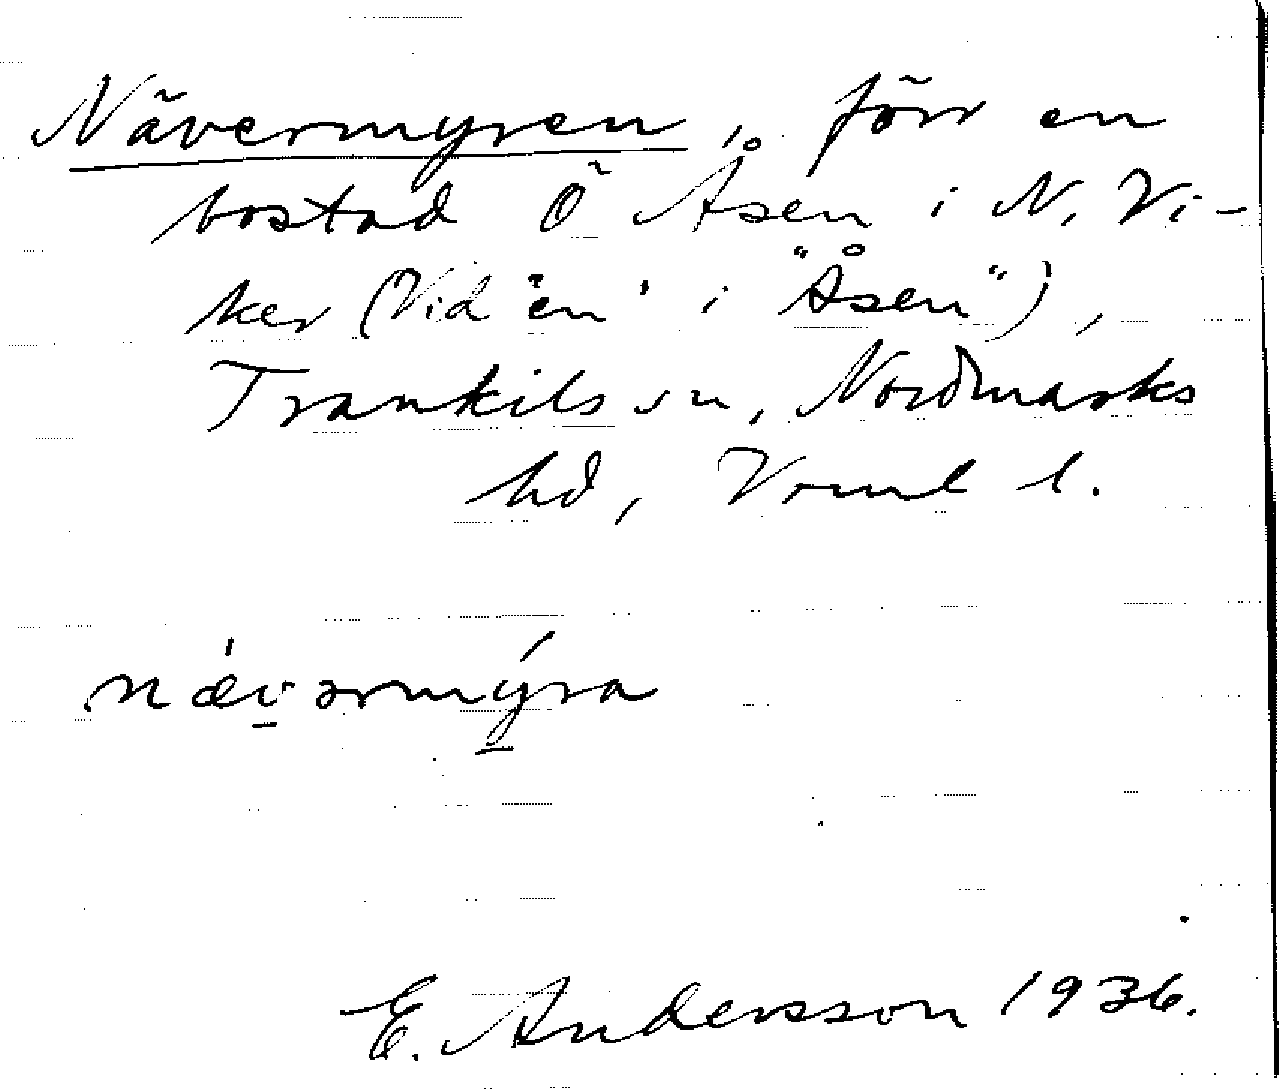 Nävermyren, förr en
bostad Ö Åsen i N. Vi-
ker (Vid "en" i "Åsen"),
Trankils sn, Nordmarks
hd, Vrml l.
nǽvərmýra
E. Andersson 1936.